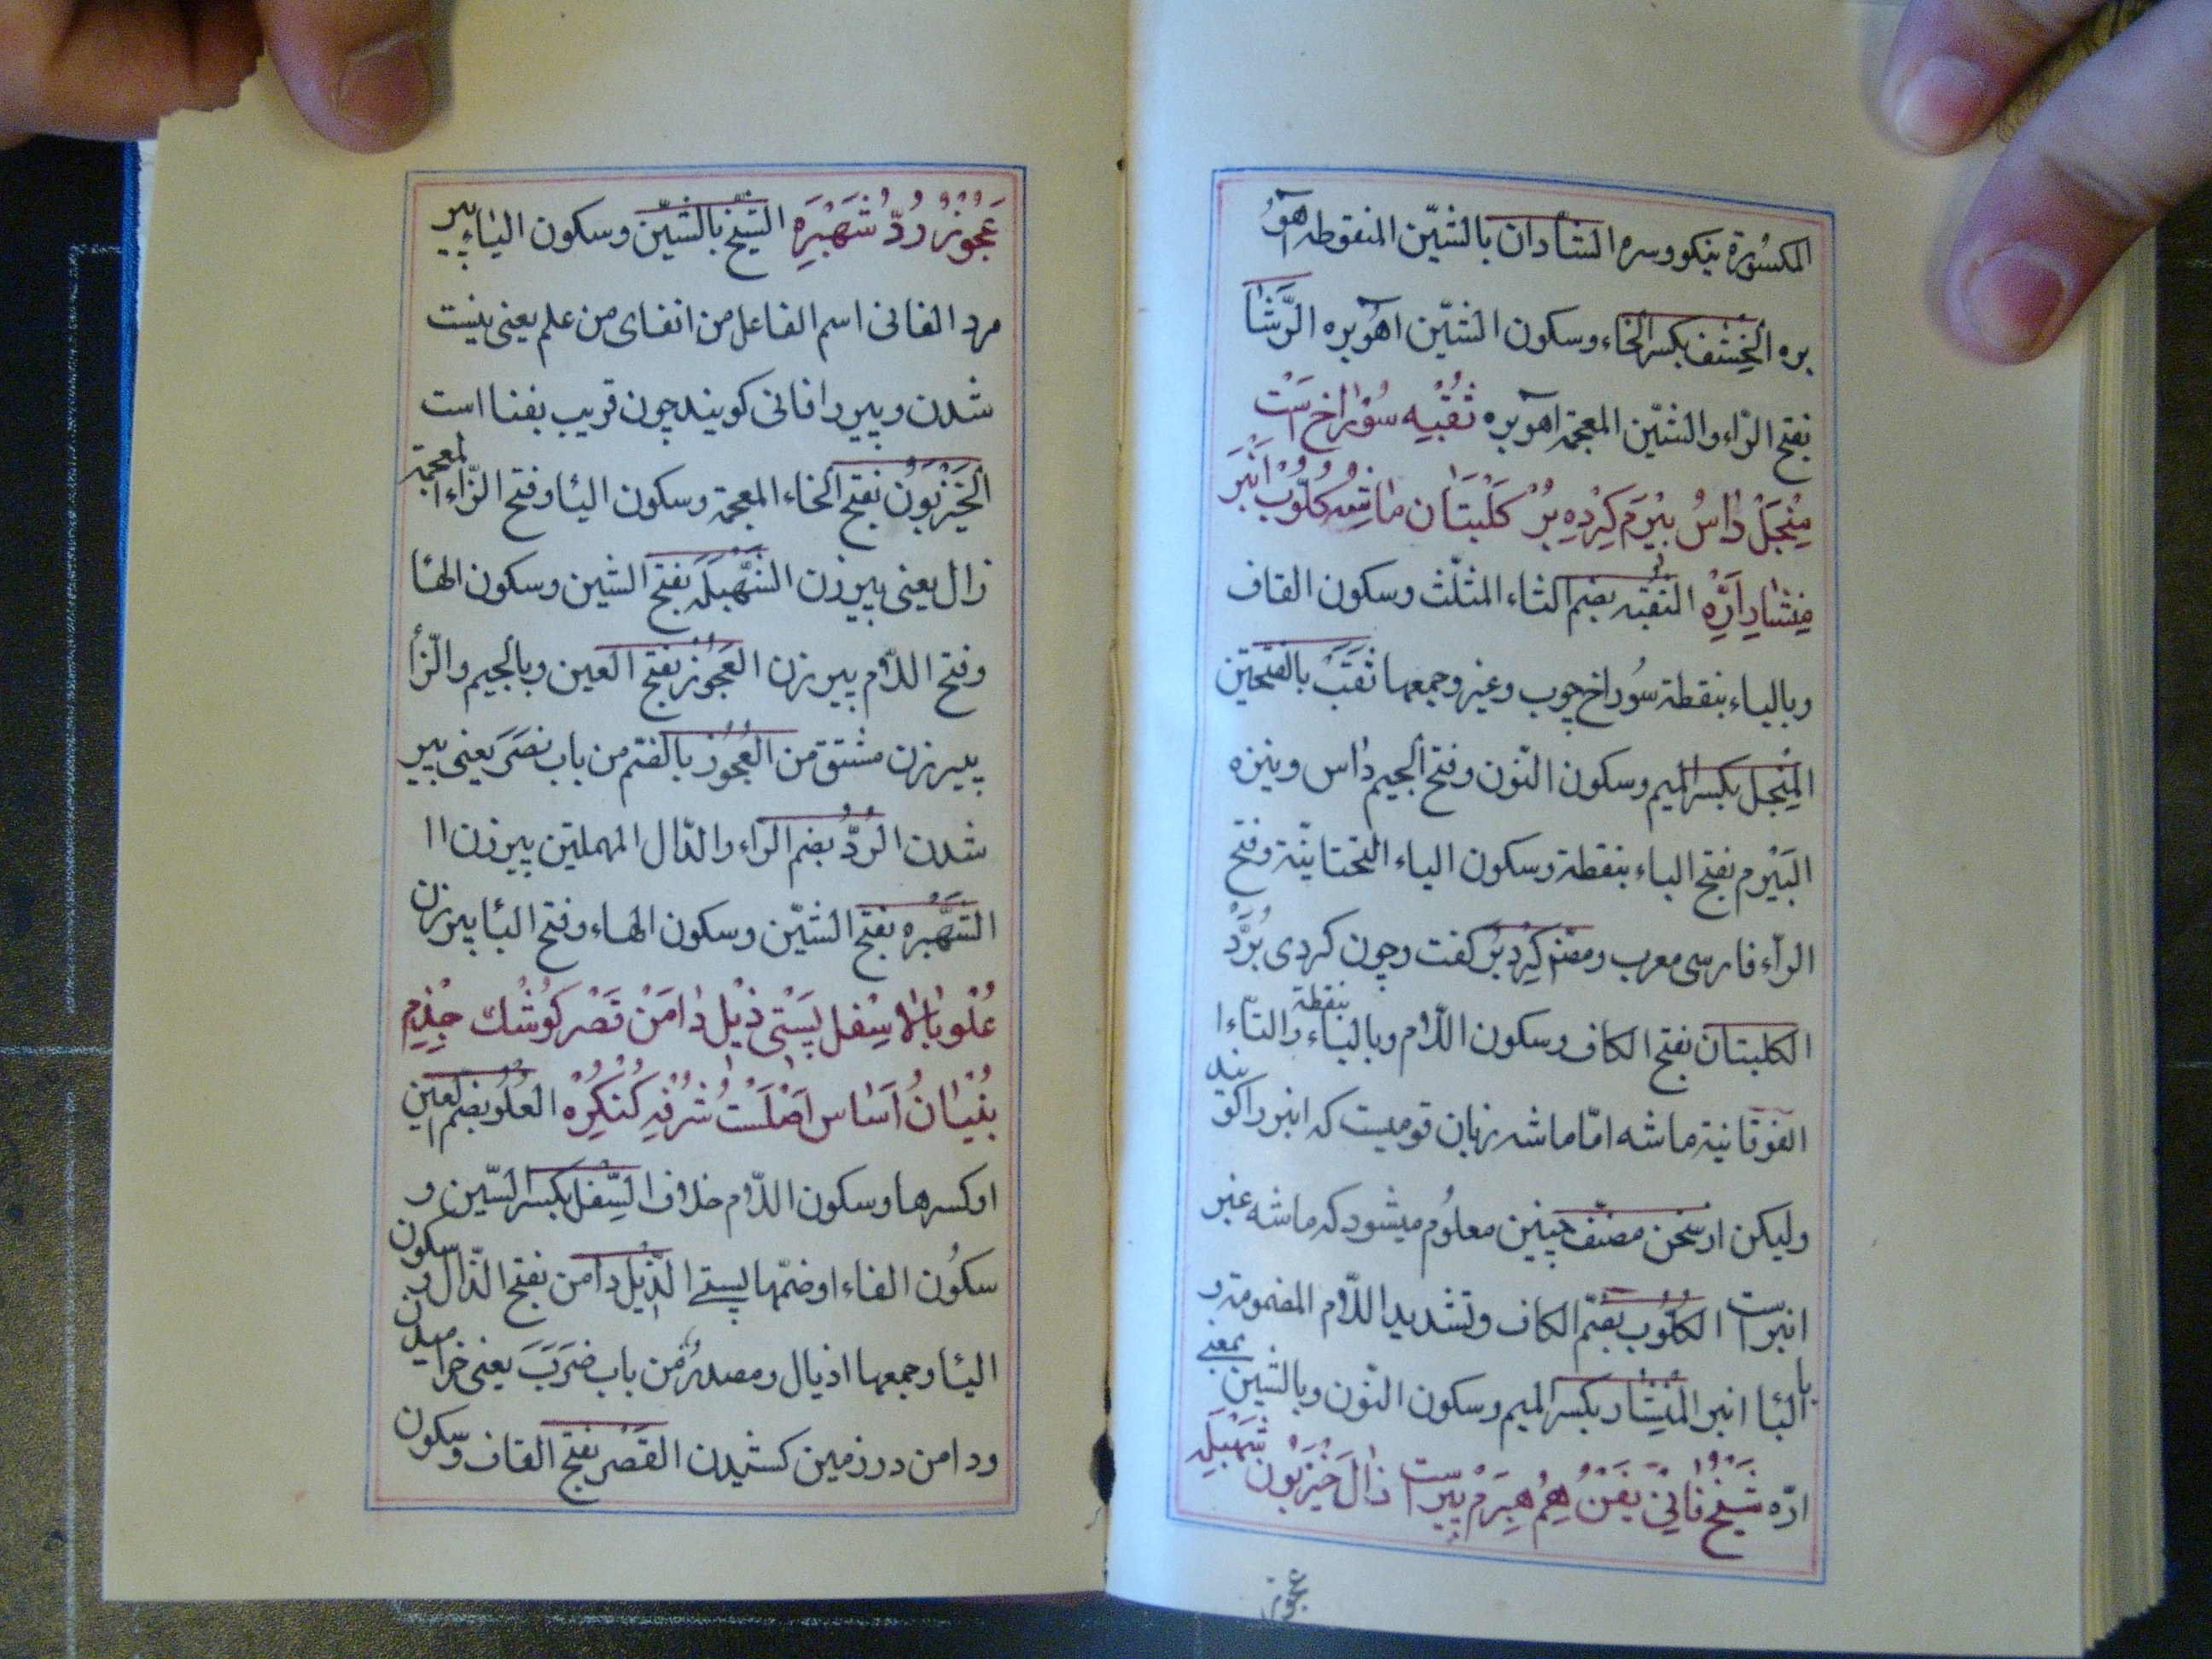 المكسورة نیکو و سره الشادان بالشّین المنقوطه آهو
بره الخِشف بکسر الخاء وسکون الشّین آهو بره الرَّشَا
بفتح الرّاء والشّین المعجمة آهو بره ثُقْبِه سُوْرَاخ اَسْت
مِنْجَلْ دٰاسُ بیْرَم کِرْدِه بُرْ کَلْبَتَان مٰاشه کُلّوُب اَنْبَر
مِنْشٰار اَرّه الثقبه بضم الثاء المثلّث وسکون القاف
وبالیاء بنقطة سُوراخ چوب وغیر وجمعها ثُقَب بالفتحتین
المِنْجَل بکسر المیم وسکون النّون وفتح الجیم دٰاس ونیزه
البَیْرم بفتح الباء بنقطة وسکون الیاء التحتانیّة وفتح
الرّاء فارسی معرب و مصنف کِرد بُر کفت و چون کردی بُرَّد
الکلبتان بفتح الکاف وسکون اللّام وبالیاء بنقطة والتّاء ا
الفوقانیة ماشه امّا ماشه زبان قومیست که انبر را کویند
ولیکن از سخن مصنّف چنین معلُوم میشود که ماشه غیر
انبر است الکُلُّوب بضمّ الکاف وتشدید اللّام المضمومة و
بالبا انبر المِنْشار بکسر المیم وسکون النّون وبالشّین بمعنی
ارّه شَیْخ فَانِیْ یَفَنْ هِمُ هِرَم پیر است ذٰالَ خَیْزَبُوْن شَهْبَلَه
عجوز
عَجُوْزُ رُدّ شَهْبَرَه الشَیْخ بالشّین وسکون الیاء پیر
مرد الفانی اسم الفاعل من افنای من علم یعنی نیست
شدن و پیر را فانی کویند چون قریب بفنا است
الخَیْزَبُوْن بفتح الخاء المعجمة وسکون الیا وفتح الزّاء المعجمة
زال یعنی پیرزن الشَّهْبَلَه بفتح الشین وسکون الها
وفتح اللّام پیرزن العَجُوْز بفتح العین وبالجیم والزّأ
پیرزن مشتق من العُجُوز بالضّم من باب نَصَرَ یعنی پیر
شدن الرُدُّ بضم الرّاء والدّال المهملتین پیرزن ۱۱
الشَّهْبَره بفتح الشّین وسکون الهاء وفتح البا پیرزن
عُلُو بٰالٰا سِفِل پَسْتی ذَیْل دٰامَنْ قَصْر کوُشْك جِذم
بُنْیٰان اَسٰاس اَصْلَسْت شُرْفِه کُنْکِرُهْ العُلُو بضم العین
او کسرها وسکون اللّام خلاف السِّفْل بکسر السّین و
سکُون الفاء او ضمّها پستی الذّیْل دامن بفتح الذّال و سکون
الیا وجمعها اذیال ومصدرُ من باب ضَرَبَ یعنی خرامیدن
ودامن در زمین کشیدن القَصْر بفتح القاف وسکون